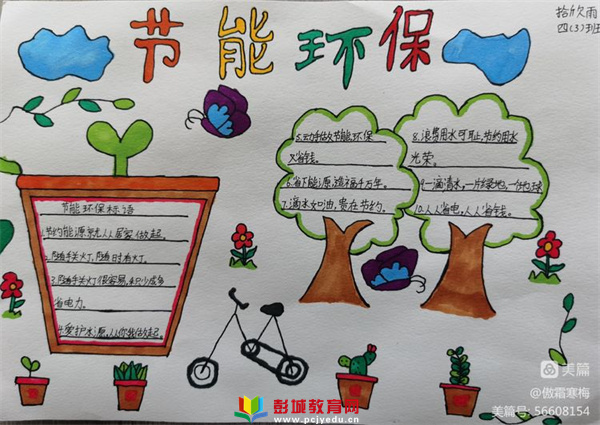 节能环保
拾欣雨
四(3)班
节能环保标语
1.节约能源就从居家做起。
2.随手关灯,随时有灯。
3.随手关灯很容易,积少成多
省电力。
4.爱护水源,从你我做起。
5.动手做节能环保
又省钱。
6.省下能源,造福千万年。
7.滴水如油,贵在节约。
8.浪费用水可耻,节约用水
光荣。
9.一滴清水,一片绿地,一个地球
10.人人省电,人人省钱。
美篇
@傲霜寒梅
美篇号:56608154
彭城教育网
www.pcjyedu.cn